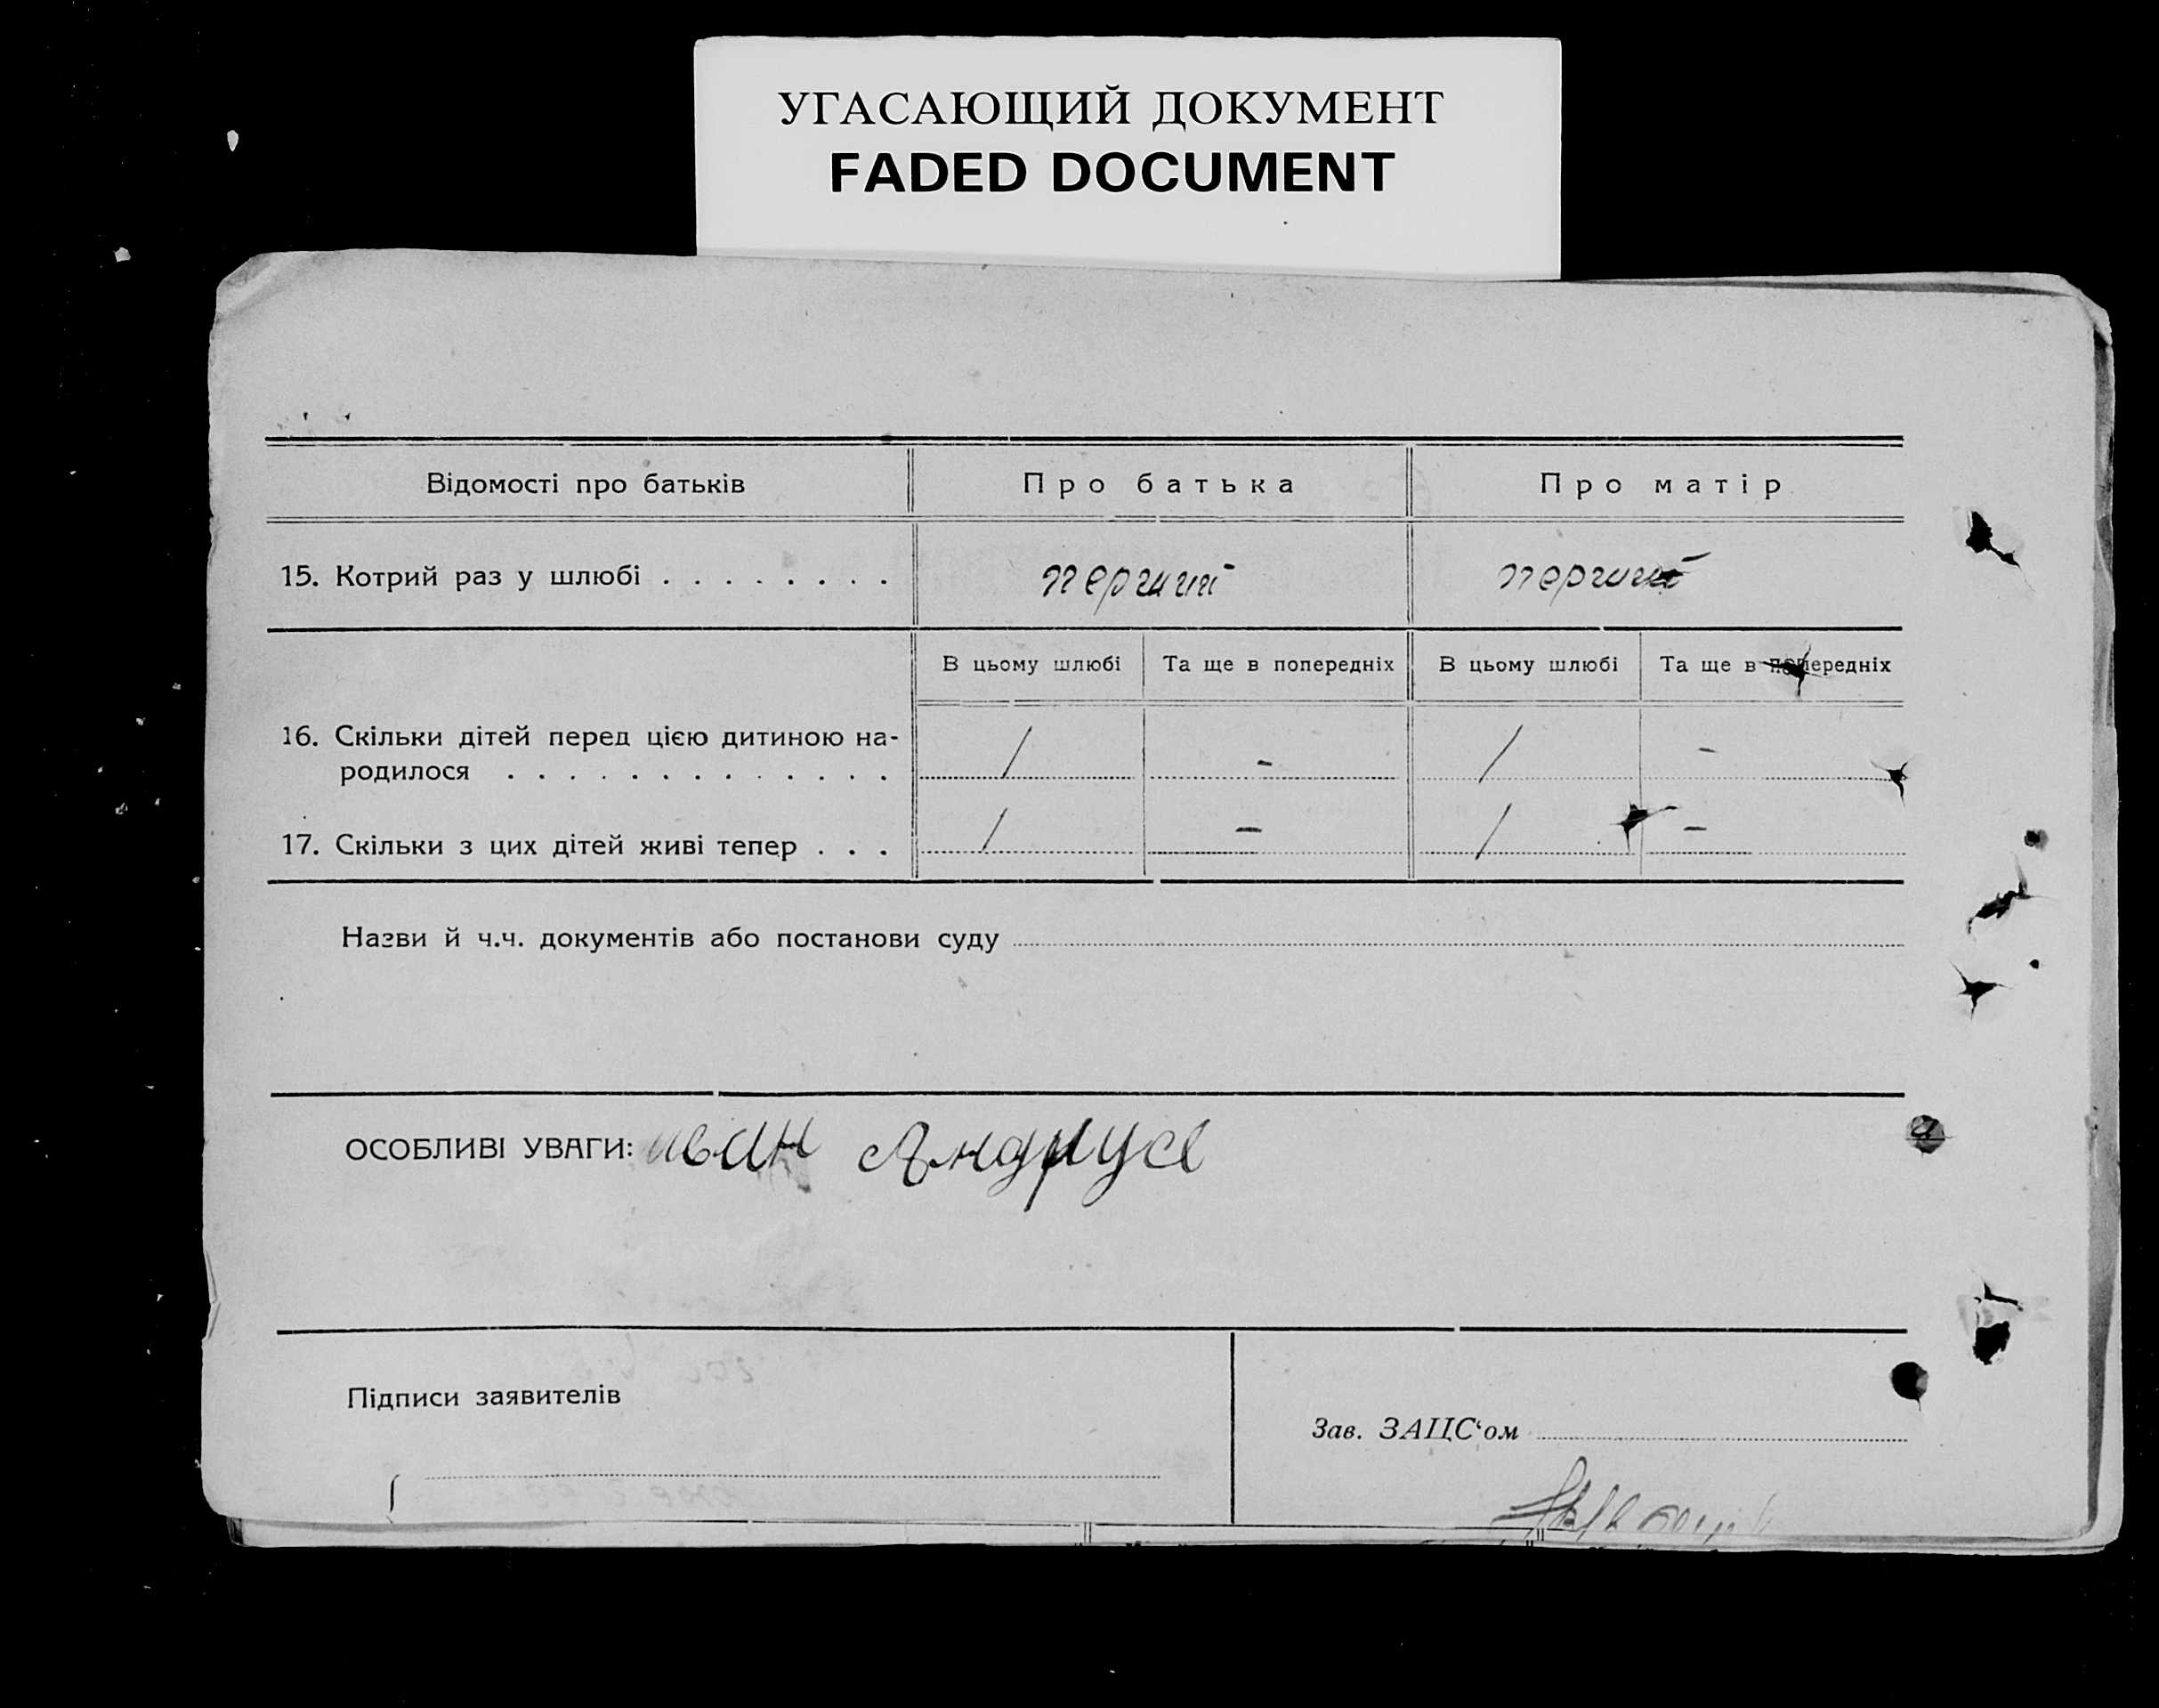 УГАСАЮЩИЙ ДОКУМЕНТ
FADED DOCUMENT
Відомості про батьків Про батька Про матір
15. Котрий раз у шлюбі . . . . . . . . перший перший
В цьому шлюбі Та ще в попередніх В цьому шлюбі Та ще в попередніх
16. Скільки дітей перед цією дитиною на-
родилося . . . . . . . . . . . . . / - / -
17. Скільки з цих дітей живі тепер . . . / - / -
Назви й ч.ч. документів або постанови суду
ОСОБЛИВІ УВАГИ: иван
Підписи заявителів
Зав. ЗАЦС‘ом